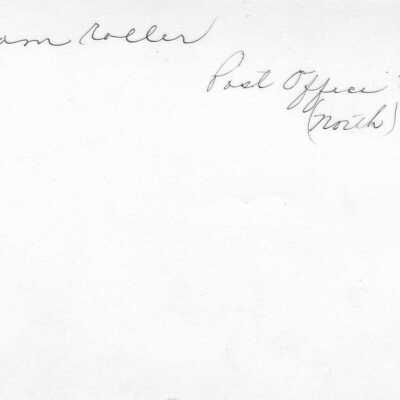 am roller
Post Office
(north)